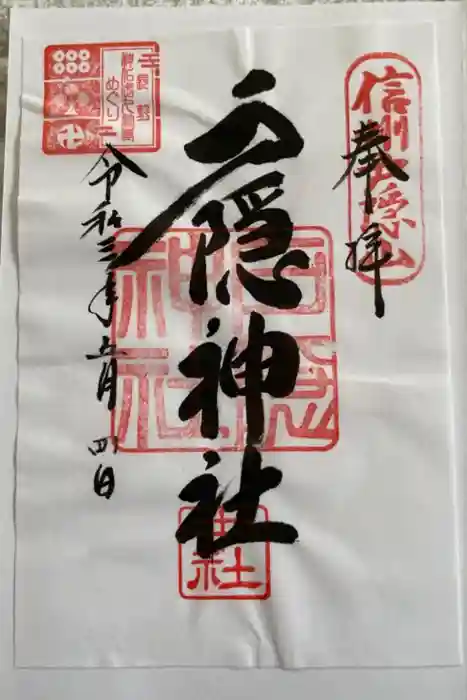 信州戸隠山
奉拝
戸隠神社
戸隠
神社
中社
令和三年五月四日
めぐり